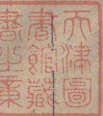 大津圖
書館藏
書之章